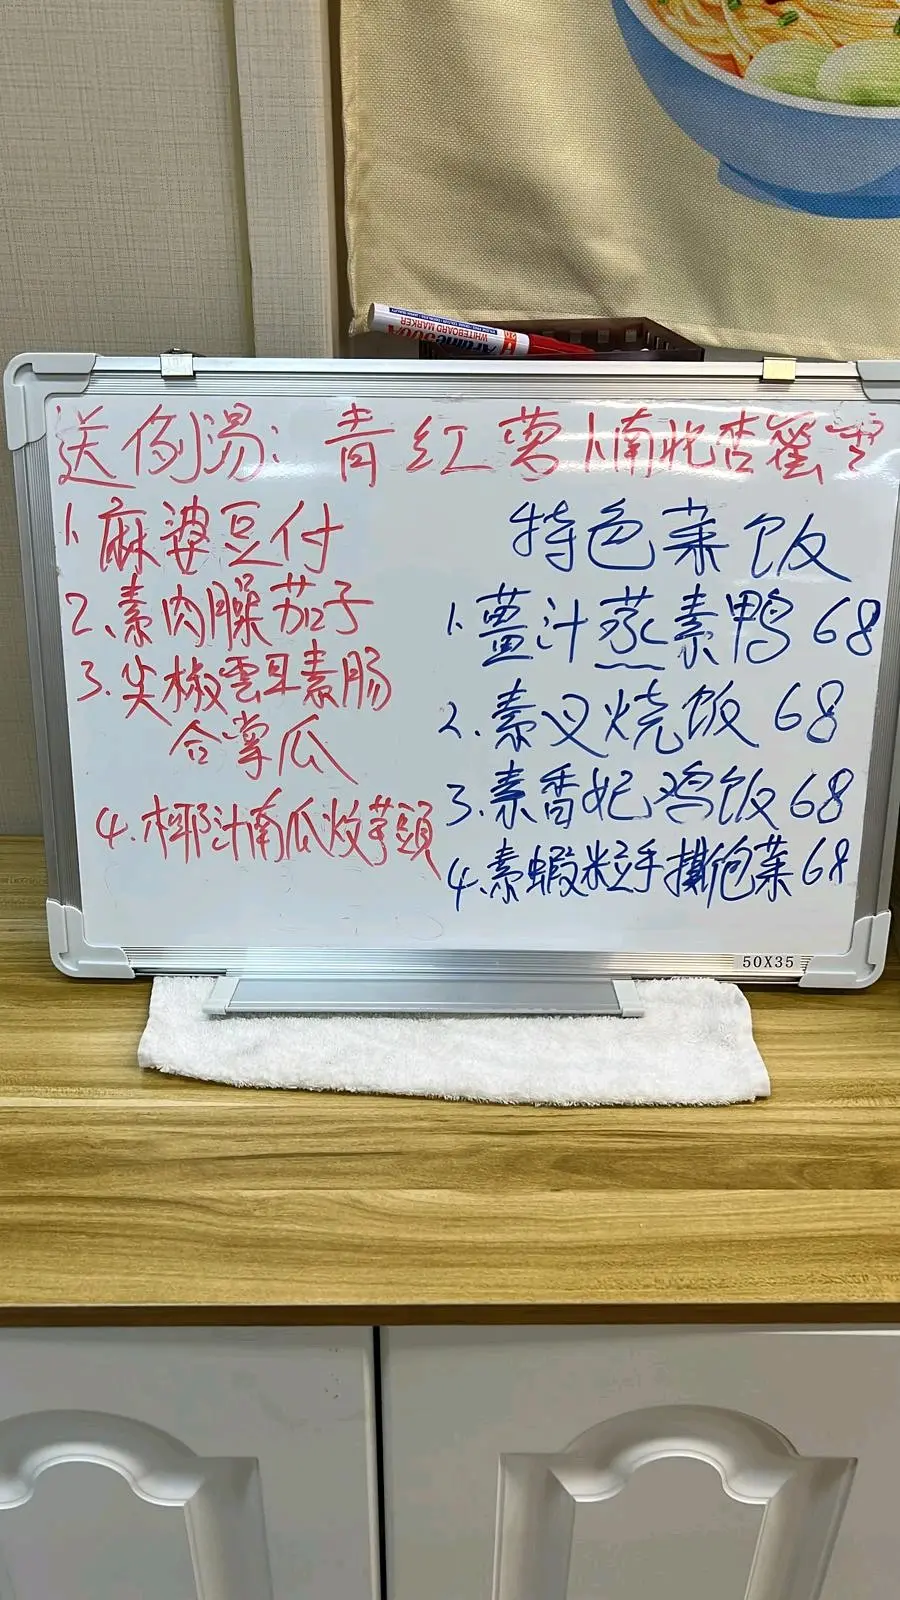 WHITEBOARD MARKER
Artline 500A
送例湯：青红萝卜南北杏蜜棗
1.麻婆豆付
2.素肉臊茄子
3.尖椒雲耳素肠
合掌瓜
4.椰汁南瓜炆芋頭
特色菜饭
1.薑汁蒸素鸭 68
2.素叉烧饭 68
3.素香妃鸡饭 68
4.素蝦粒手撕包菜 68
50X35